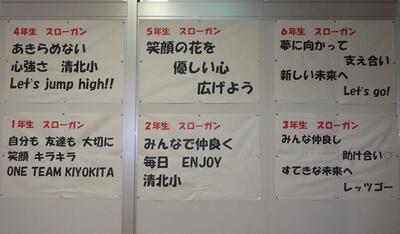 4年生 スローガン
あきらめない
心強さ 清北小
Let's jump high!!
5年生 スローガン
笑顔の花を
優しい心
広げよう
6年生 スローガン
夢に向かって
支え合い
新しい未来へ
Let's go!
1年生 スローガン
自分も 友達も 大切に
笑顔 キラキラ
ONE TEAM KIYOKITA
2年生 スローガン
みんなで仲良く
毎日 ENJOY
清北小
3年生 スローガン
みんな仲良し
助け合い♡
すてきな未来へ
レッツゴー